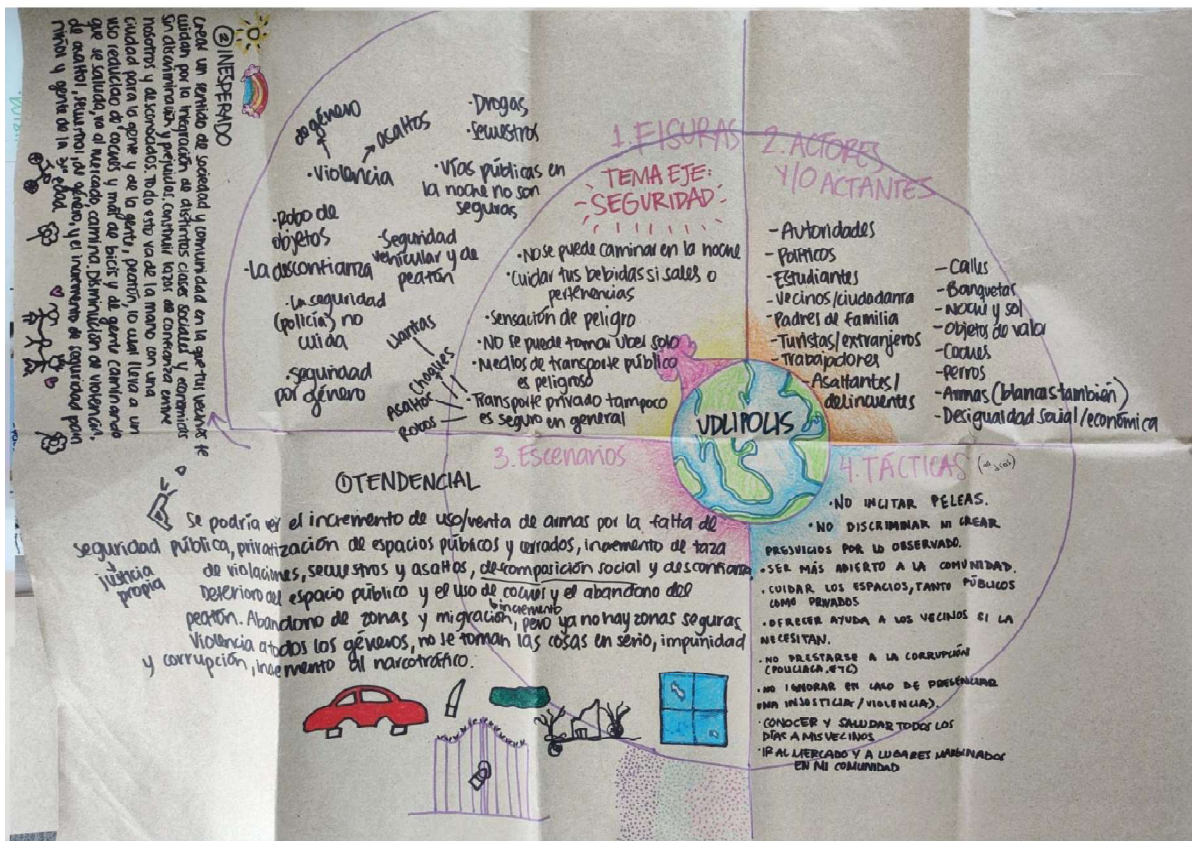 ② INESPERADO
Crear un sentido de sociedad y comunidad en la que tus vecinos te
cuidan por la integración de distintas clases sociales y económicas
sin discriminación y prejuicios. Construir lazos de confianza entre
nosotros y desconocidos. Todo esto va de la mano con una
ciudad para la gente y de la gente, peatón, lo cual lleva a un
uso reducido de coches y más de bicis y de gente caminando
que se saluda, va al mercado, camina. Disminución de violencia,
de asaltos, secuestros, de género y el incremento de seguridad para
niños y gente de la 3ra edad.
de género
asaltos
·Violencia
·Drogas
·Secuestros
·Vías públicas en
la noche no son
seguras
·Robo de
objetos
·Seguridad
vehicular y de
peatón
·La desconfianza
·La seguridad
(policía) no
cuida
·seguridad
por género
Llantas
Choques
Asaltos
Robos
1. FIGURAS
TEMA EJE:
-SEGURIDAD-
·No se puede caminar en la noche
·Cuidar tus bebidas si sales o
pertenencias
·Sensación de peligro
·No se puede tomar Uber solo
·Medios de transporte público
es peligroso
·Transporte privado tampoco
es seguro en general
2. ACTORES
Y/O ACTANTES
-Autoridades
-Políticos
-Estudiantes
-Vecinos/ciudadanía
-Padres de familia
-Turistas/extranjeros
-Trabajadores
-Asaltantes/
delincuentes
-Calles
-Banquetas
-Noche y sol
-Objetos de valor
-Coches
-Perros
-Armas (blancas también)
-Desigualdad social/económica
UDLIPOLIS
3. Escenarios
① TENDENCIAL
Se podría ver el incremento de uso/venta de armas por la falta de
seguridad pública, privatización de espacios públicos y cerrados, incremento de taza
justicia
propia
de violaciones, secuestros y asaltos, descomposición social y desconfianza.
Deterioro del espacio público y el uso de coches y el abandono del
incremento
peatón. Abandono de zonas y migración, pero ya no hay zonas seguras
Violencia a todos los géneros, no se toman las cosas en serio, impunidad
y corrupción, incremento al narcotráfico.
4. TÁCTICAS
·NO INCITAR PELEAS.
·NO DISCRIMINAR NI CREAR
PREJUICIOS POR LO OBSERVADO.
·SER MÁS ABIERTO A LA COMUNIDAD.
·CUIDAR LOS ESPACIOS, TANTO PÚBLICOS
COMO PRIVADOS
·OFRECER AYUDA A LOS VECINOS SI LA
NECESITAN.
·NO PRESTARSE A LA CORRUPCIÓN
(POLICIACA, ETC)
·NO IGNORAR EN CASO DE PRESENCIAR
UNA INJUSTICIA/VIOLENCIA).
·CONOCER Y SALUDAR TODOS LOS
DÍAS A MIS VECINOS
·IR AL MERCADO Y A LUGARES MARGINADOS
EN MI COMUNIDAD